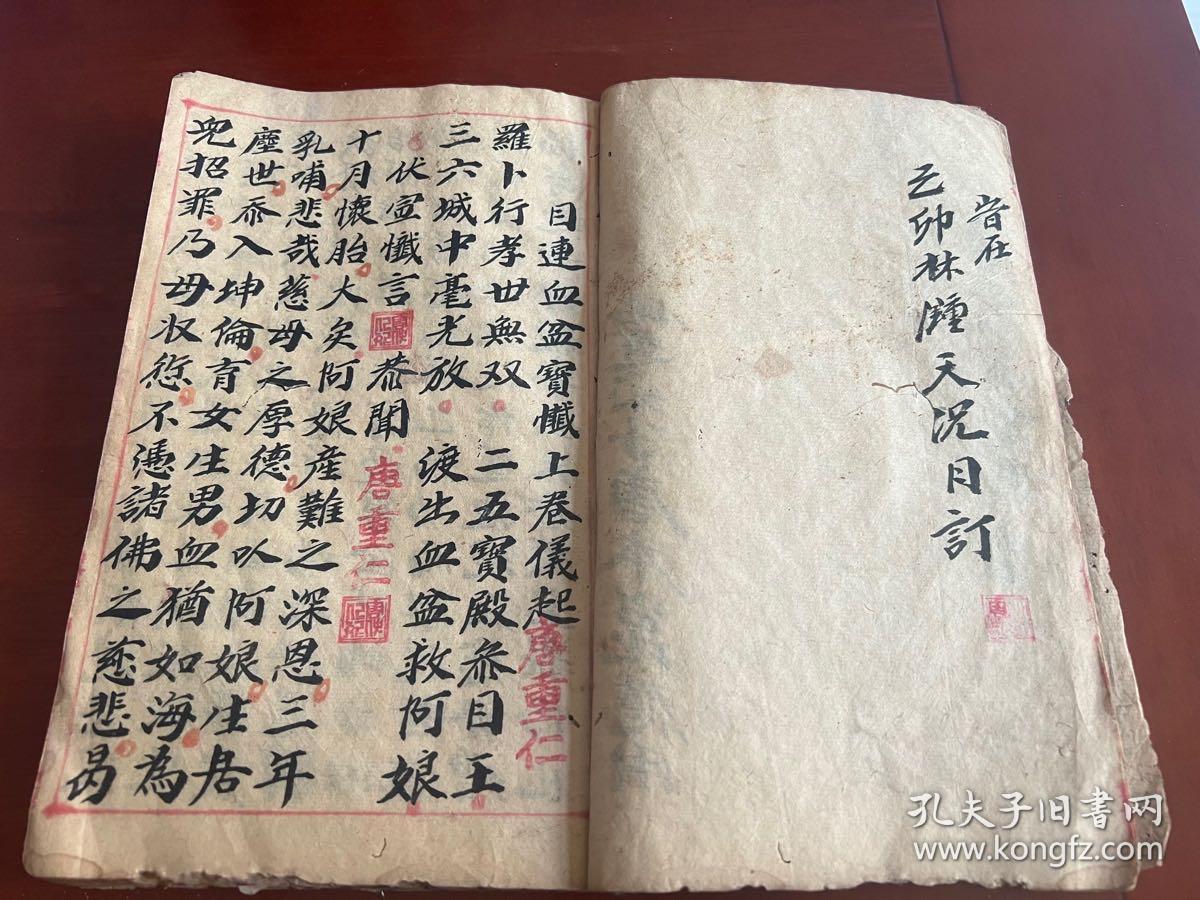 旹在
己卯林鍾天況月訂
目連血盆寶懺上卷儀起
唐重仁
羅卜行孝世無双 二五寶殿叅目王
三六城中毫光放 渡出血盆救阿娘
伏宣懺言 恭聞
唐重仁
十月懷胎大矣阿娘産難之深恩三年
乳哺悲哉慈母之厚德切以阿娘生居
塵世忝入坤倫育女生男血猶如海為
兒招罪乃母收愆不憑諸佛之慈悲曷
孔夫子旧书网
www.kongfz.com